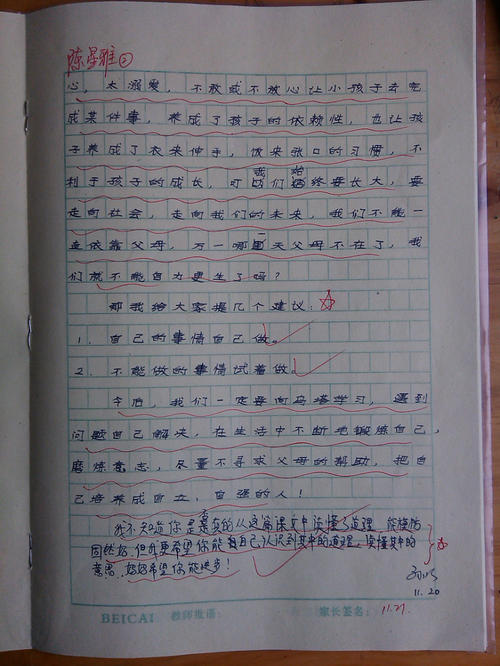 陈星雅②
心，太溺爱，不敢或不放心让小孩子去完
成某件事，养成了孩子的依赖性，也让孩
子养成了衣来伸手，饭来张口的习惯，不
利于孩子的成长，可我们始终要长大，要
走向社会，走向我们的未来，我们不能一
直依靠父母，万一哪一天父母不在了，我
们就不能自力更生了吗？
那我给大家提几个建议：
1．自己的事情自己做。
2．不能做的事情试着做。
今后，我们一定要向乌塔学习，遇到
问题自己解决，在生活中不断地锻炼自己，
磨炼意志，尽量不寻求父母的帮助，把自
己培养成自立，自强的人！
我不知道你是否真的从这篇课文中读懂了道理，能模仿
固然好，但我更希望你能自己认识到其中的道理，读懂其中的
意思，妈妈希望你能进步！
11.20
BEICAI 教师批语： 家长签名： 11.21